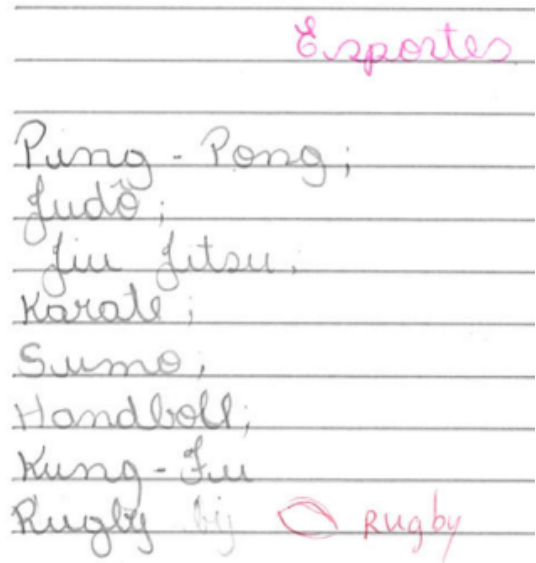 Esportes
Pung - Pong;
Judô;
Jiu Jitsu;
Karate;
Sumo;
Handboll;
Kung-Fu
Rugby by Rugby